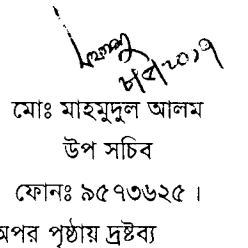 মোঃ মাহমুদুল আলম
উপ সচিব
ফোনঃ ৯৫৭৩৬২৫ ।
অপর পৃষ্ঠায় দ্রষ্টব্য